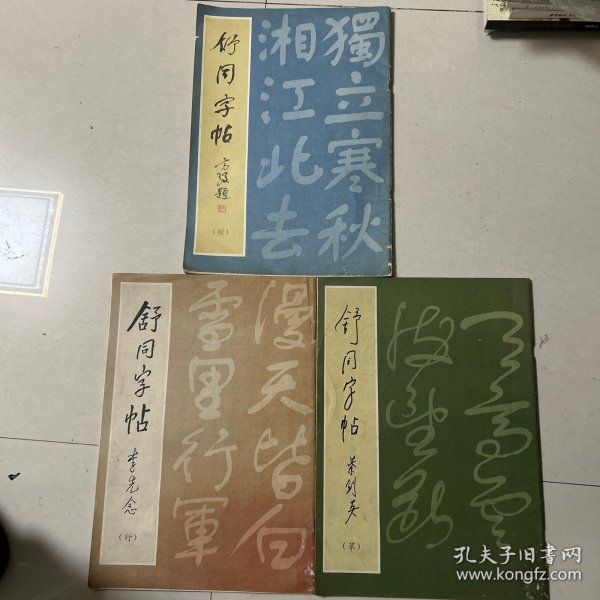 舒同字帖
方毅题
（楷）
獨立寒秋
湘江北去
舒同字帖
李先念
（行）
漫天皆白
雪里行軍
舒同字帖
（草）
天高雲
孔夫子旧书网
www.kongfz.com